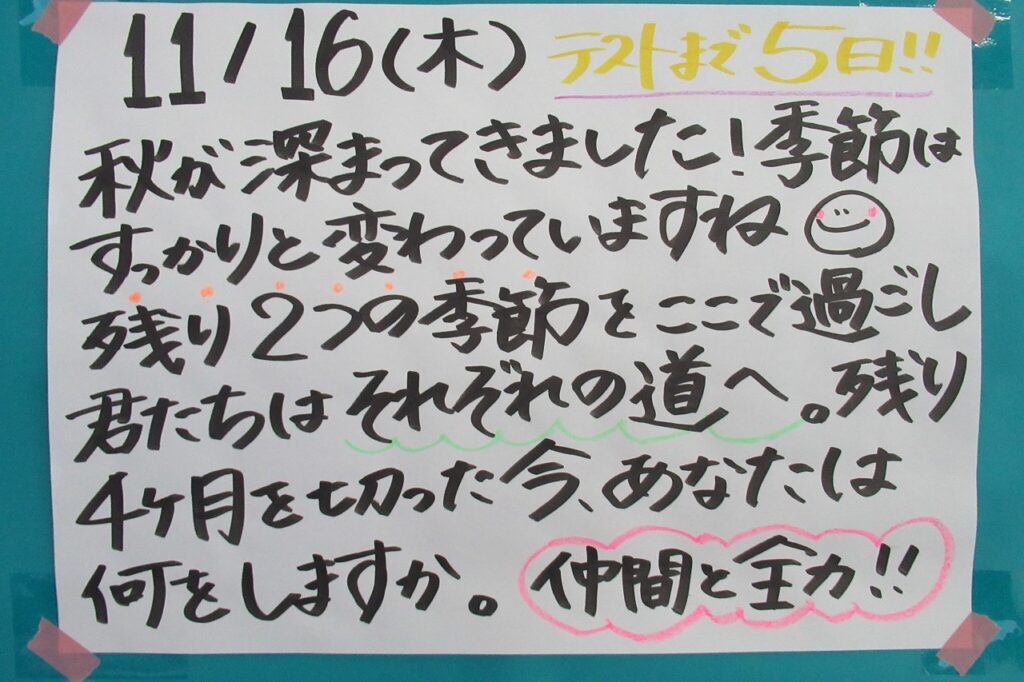 11/16(木) テストまで5日!!
秋が深まってきました!季節は
すっかりと変わっていますね
残り2つの季節をここで過ごし
君たちはそれぞれの道へ。残り
4ヶ月を切った今、あなたは
何をしますか。 仲間と全力!!